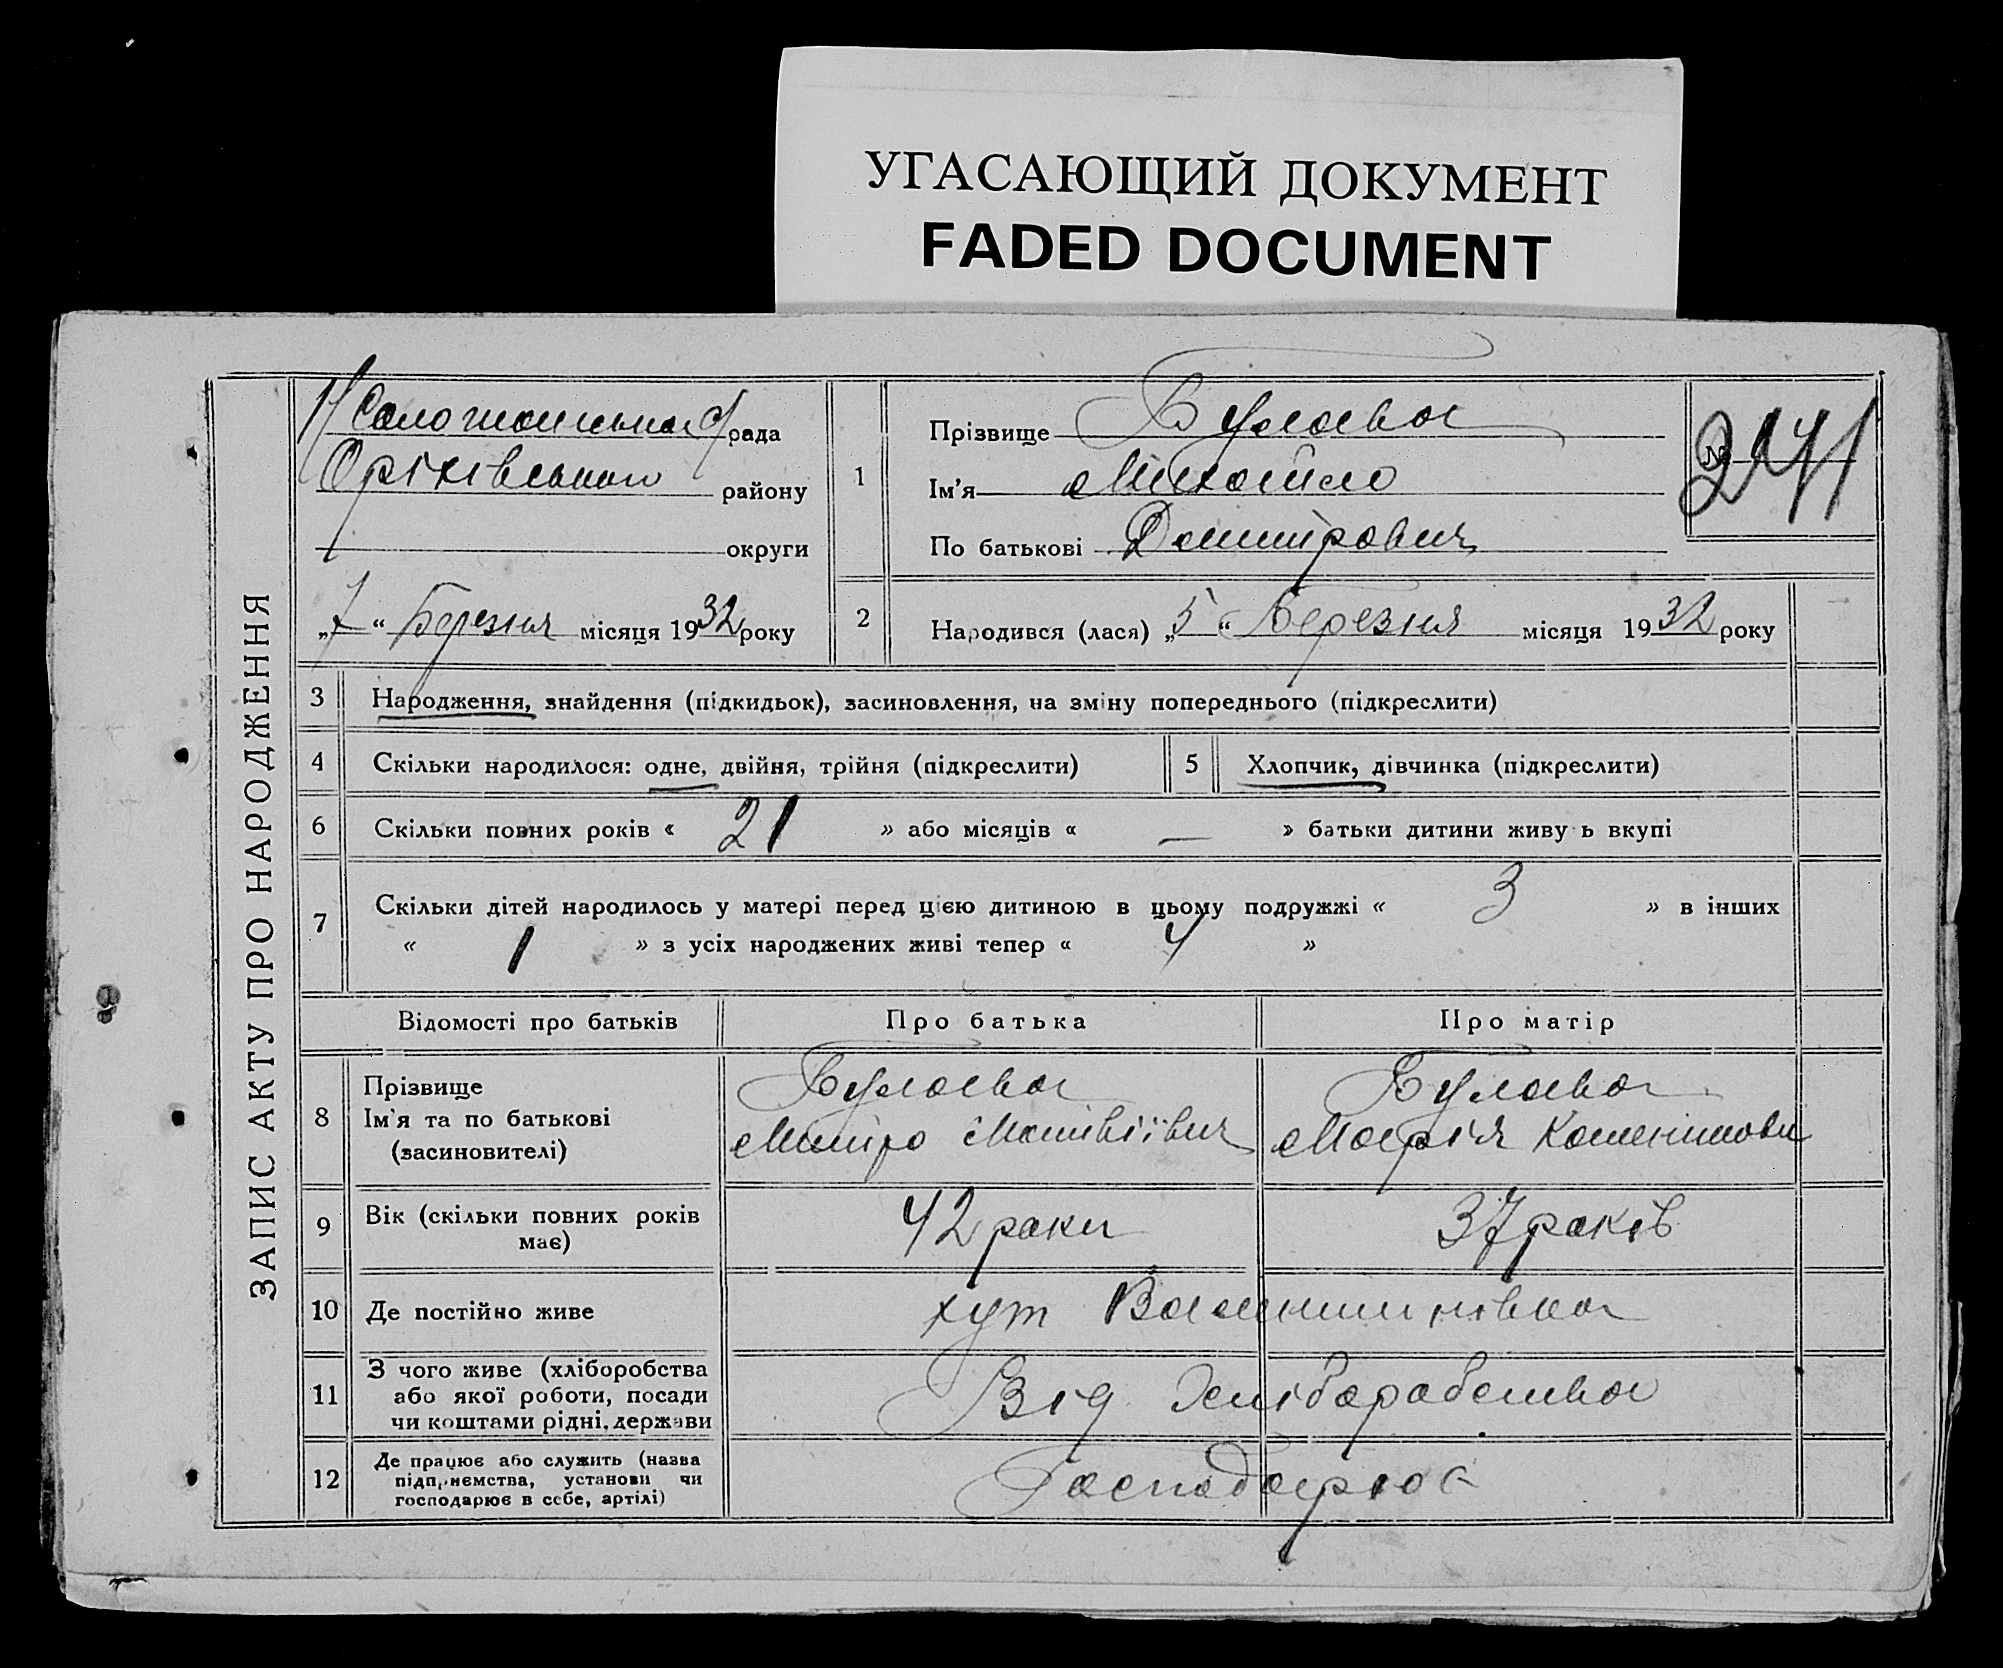 УГАСАЮЩИЙ ДОКУМЕНТ
FADED DOCUMENT
ЗАПИС АКТУ ПРО НАРОДЖЕННЯ
рада
Оріхівського району
округи
„7“ Березня місяця 1932 року
1
Прізвище Булава
Ім’я Михайло
По батькові Дмитрович
№ 241
2
Народився (лася) „5“ Березня місяця 1932 року
3 Народження, знайдення (підкидьок), засиновлення, на зміну попереднього (підкреслити)
4 Скільки народилося: одне, двійня, трійня (підкреслити)
5 Хлопчик, дівчинка (підкреслити)
6 Скільки повних років « 21 » або місяців « — » батьки дитини живуть вкупі
7 Скільки дітей народилось у матері перед цією дитиною в цьому подружжі « 3 » в інших
« 1 » з усіх народжених живі тепер « 4 »
Відомості про батьків Про батька Про матір
8
Прізвище
Ім’я та по батькові
(засиновителі)
Булава
Митро Матвіївич
Булава
Марія
9
Вік (скільки повних років
має)
42 роки 37 років
10 Де постійно живе хут
11
З чого живе (хліборобства
або якої роботи, посади
чи коштами рідні, держави
Від Хліборобства
12
Де працює або служить (назва
підприємства, установи чи
господарює в себе, артілі)
Господарює